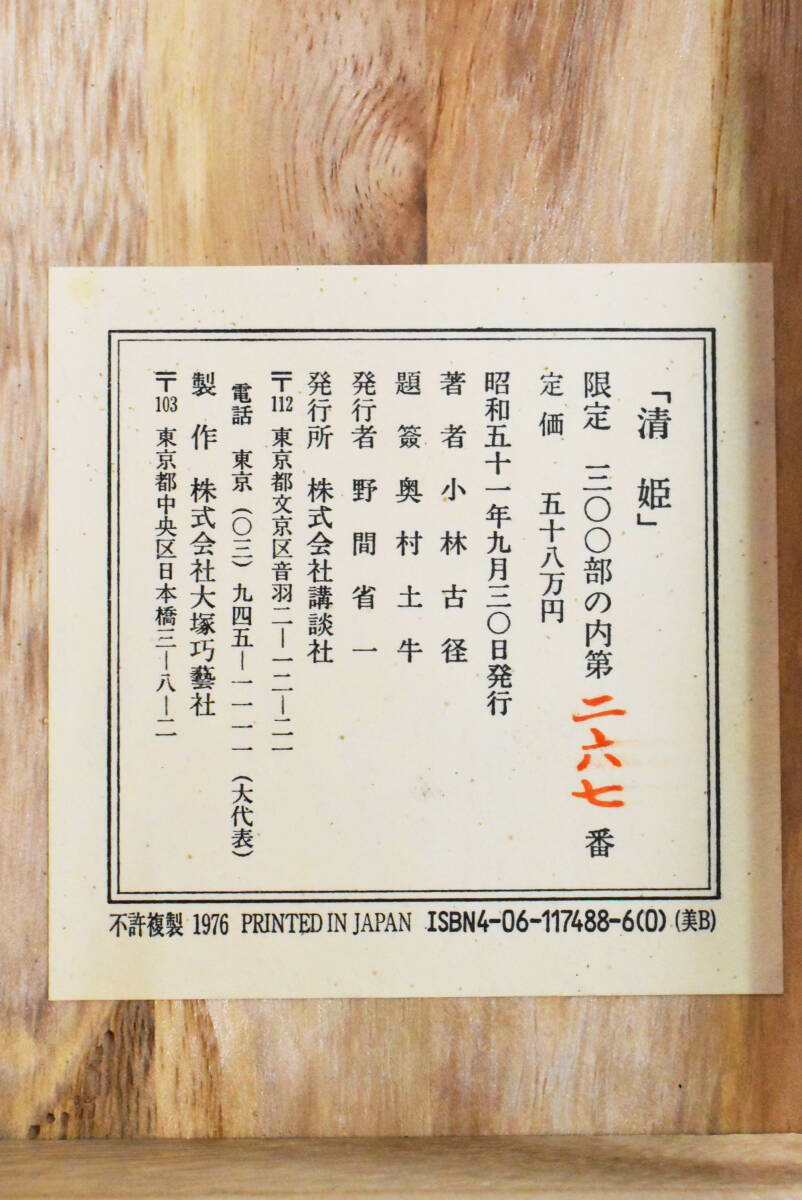 「清姫」
限定 三〇〇部の内第 二六七 番
定価 五十八万円
昭和五十一年九月三〇日発行
著者 小林古径
題簽 奥村土牛
発行者 野間省一
発行所 株式会社講談社
〒112 東京都文京区音羽二-一二-二一
電話 東京(〇三)九四五-一一一一(大代表)
製作 株式会社大塚巧藝社
〒103 東京都中央区日本橋三-八-二
不許複製 1976 PRINTED IN JAPAN ISBN4-06-117488-6(0) (美B)